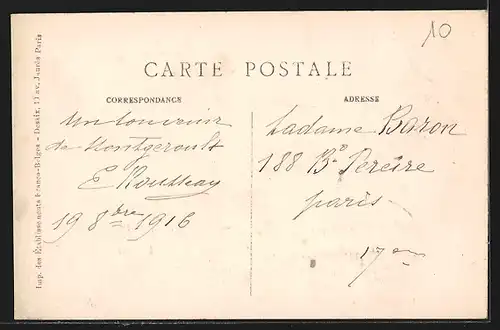 10
CARTE POSTALE
CORRESPONDANCE
Un souvenir
de Montgeroult
E Rousseau
19 8bre 1916
ADRESSE
Madame Baron
188 Bd Pereire
Paris
17em
Imp. des Établissements Franco-Belges - Dessix, 11 av. Jaurès Paris